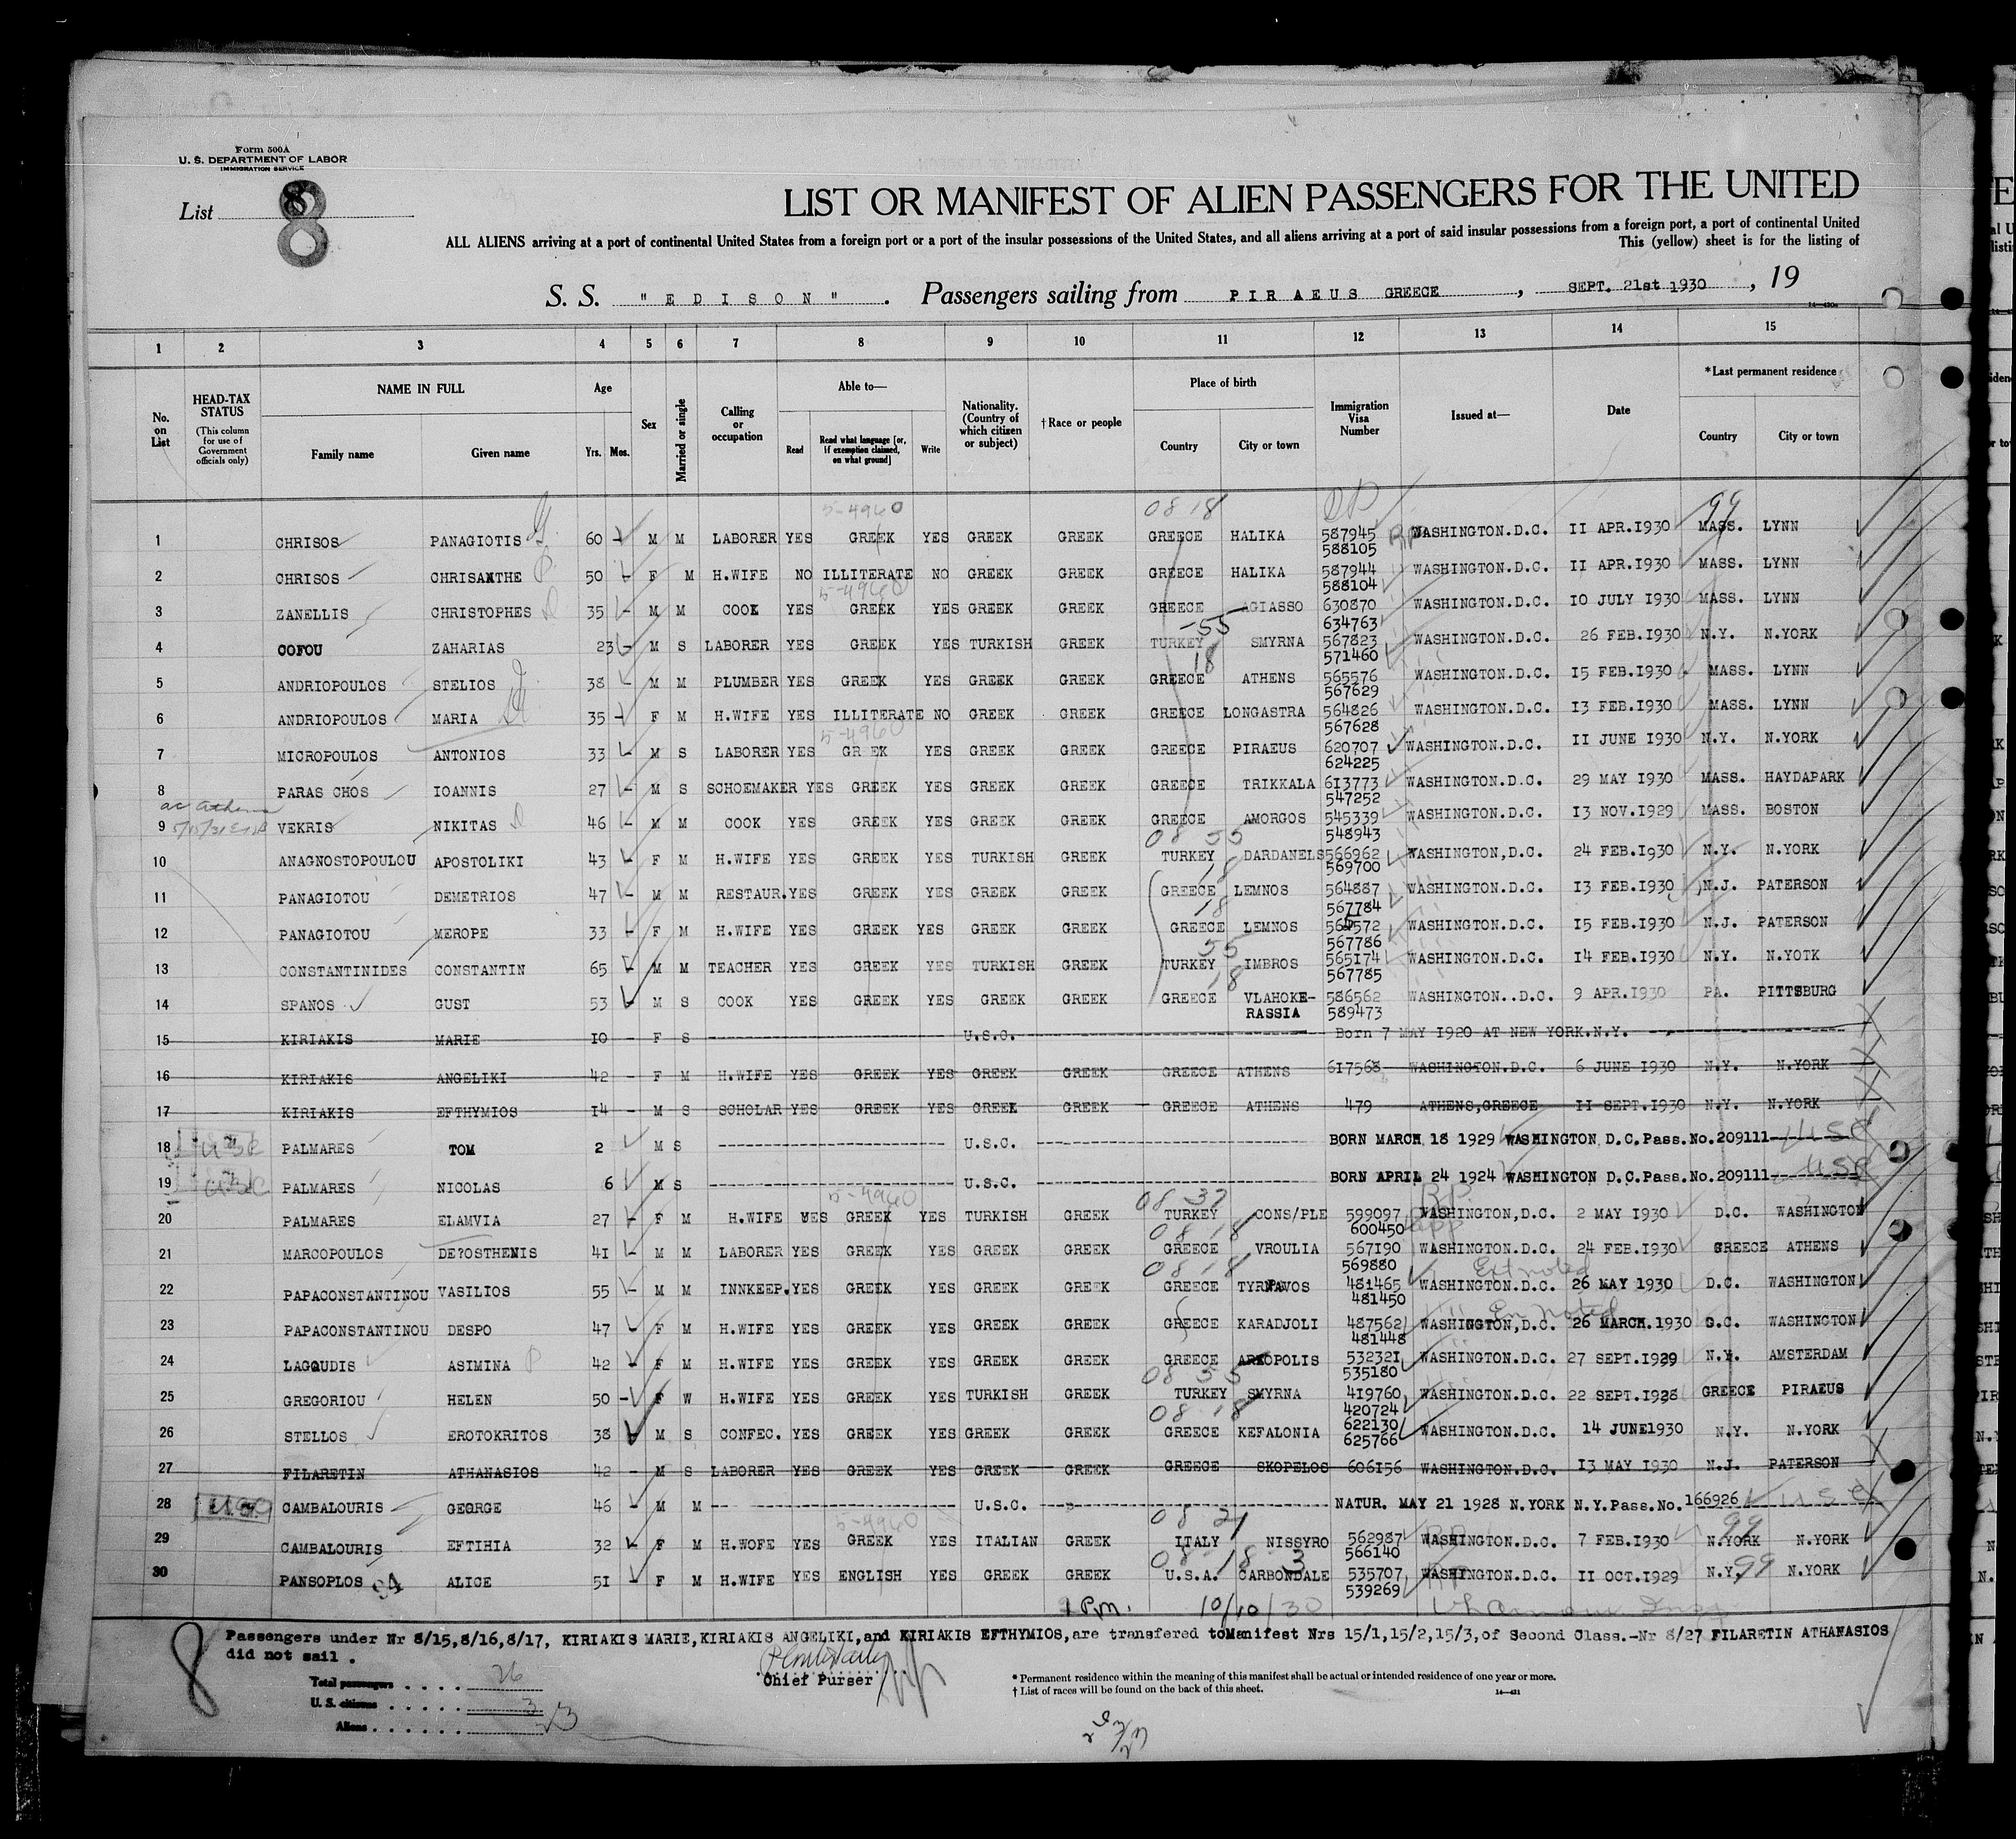 Form 500A
U. S. DEPARTMENT OF LABOR
IMMIGRATION SERVICE
List 8
LIST OR MANIFEST OF ALIEN PASSENGERS FOR THE UNITED
ALL ALIENS arriving at a port of continental United States from a foreign port or a port of the insular possessions of the United States, and all aliens arriving at a port of said insular possessions from a foreign port, a port of continental United
This (yellow) sheet is for the listing of
S. S. "EDISON". Passengers sailing from PIRAEUS GREECE, SEPT. 21st 1930, 19
1 2 3 4 5 6 7 8 9 10 11 12 13 14 15
No. on List HEAD-TAX STATUS (This column for use of Government officials only) NAME IN FULL Family name Given name Age Yrs. Mos. Sex Married or single Calling or occupation Able to— Read Read what language [or, if exemption claimed, on what ground] Write Nationality. (Country of which citizen or subject) †Race or people Place of birth Country City or town Immigration Visa Number Issued at— Date *Last permanent residence Country City or town
5-4960 08 18 99
1 CHRISOS PANAGIOTIS 60 - M M LABORER YES GREEK YES GREEK GREEK GREECE HALIKA 587945 WASHINGTON.D.C. II APR.I930 MASS. LYNN
588105
2 CHRISOS CHRISANTHE 50 - F M H.WIFE NO ILLITERATE NO GREEK GREEK GREECE HALIKA 587944 WASHINGTON.D.C. II APR.I930 MASS. LYNN
5-4960 588104
3 ZANELLIS CHRISTOPHES 35 - M M COOK YES GREEK YES GREEK GREEK GREECE AGIASSO 630870 WASHINGTON.D.C. IO JULY I930 MASS. LYNN
55 634763
4 COFOU ZAHARIAS 23 - M S LABORER YES GREEK YES TURKISH GREEK TURKEY SMYRNA 567823 WASHINGTON.D.C. 26 FEB.I930 N.Y. N.YORK
18 571460
5 ANDRIOPOULOS STELIOS 38 M M PLUMBER YES GREEK YES GREEK GREEK GREECE ATHENS 565576 WASHINGTON.D.C. I5 FEB.I930 MASS. LYNN
567629
6 ANDRIOPOULOS MARIA 35 - F M H.WIFE YES ILLITERATE NO GREEK GREEK GREECE LONGASTRA 564826 WASHINGTON.D.C. I3 FEB.I930 MASS. LYNN
5-4960 567628
7 MICROPOULOS ANTONIOS 33 - M S LABORER YES GREEK YES GREEK GREEK GREECE PIRAEUS 620707 WASHINGTON.D.C. II JUNE I930 N.Y. N.YORK
624225
8 PARAS CHOS IOANNIS 27 - M S SCHOEMAKER YES GREEK YES GREEK GREEK GREECE TRIKKALA 6I3773 WASHINGTON.D.C. 29 MAY I930 MASS. HAYDAPARK
547252
9 VEKRIS NIKITAS 46 - M M COOK YES GREEK YES GREEK GREEK GREECE AMORGOS 545339 WASHINGTON.D.C. I3 NOV.I929 MASS. BOSTON
08 55 548943
10 ANAGNOSTOPOULOU APOSTOLIKI 43 - F M H.WIFE YES GREEK YES TURKISH GREEK TURKEY DARDANELS 566962 WASHINGTON,D.C. 24 FEB.I930 N.Y. N.YORK
18 569700
11 PANAGIOTOU DEMETRIOS 47 - M M RESTAUR. YES GREEK YES GREEK GREEK GREECE LEMNOS 564887 WASHINGTON.D.C. I3 FEB.I930 N.J. PATERSON
18 567784
12 PANAGIOTOU MEROPE 33 - F M H.WIFE YES GREEK YES GREEK GREEK GREECE LEMNOS 565572 WASHINGTON.D.C. I5 FEB.I930 N.J. PATERSON
55 567786
13 CONSTANTINIDES CONSTANTIN 65 - M M TEACHER YES GREEK YES TURKISH GREEK TURKEY IMBROS 565I74 WASHINGTON.D.C. I4 FEB.I930 N.Y. N.YOTK
18 567785
14 SPANOS GUST 53 - M S COOK YES GREEK YES GREEK GREEK GREECE VLAHOKE- 586562 WASHINGTON..D.C. 9 APR.I930 PA. PITTSBURG
RASSIA 589473
15 KIRIAKIS MARIE IO - F S U.S.C. Born 7 MAY I920 AT NEW YORK.N.Y.
16 KIRIAKIS ANGELIKI 42 - F M H.WIFE YES GREEK YES GREEK GREEK GREECE ATHENS 6I7568 WASHINGTON.D.C. 6 JUNE I930 N.Y. N.YORK
17 KIRIAKIS EFTHYMIOS I4 - M S SCHOLAR YES GREEK YES GREEK GREEK GREECE ATHENS 479 ATHENS,GREECE II SEPT.I930 N.Y. N.YORK
18 USC PALMARES TOM 2 M S U.S.C. BORN MARCH 18 1929 WASHINGTON D.C.Pass.No.209111 USC
19 USC PALMARES NICOLAS 6 M S U.S.C. BORN APRIL 24 1924 WASHINGTON D.C.Pass.No.209111 USC
5-4960 08 37 R.P.
20 PALMARES ELAMVIA 27 - F M H.WIFE YES GREEK YES TURKISH GREEK TURKEY CONS/PLE 599097 WASHINGTON,D.C. 2 MAY I930 D.C. WASHINGTON
08 18 600450
21 MARCOPOULOS DE?OSTHENIS 4I - M M LABORER YES GREEK YES GREEK GREEK GREECE VROULIA 567I90 WASHINGTON.D.C. 24 FEB.I930 GREECE ATHENS
08 18 569880 Ext noted
22 PAPACONSTANTINOU VASILIOS 55 - M M INNKEEP. YES GREEK YES GREEK GREEK GREECE TYRNAVOS 481465 WASHINGTON.D.C. 26 MAY 1930 D.C. WASHINGTON
481450
23 PAPACONSTANTINOU DESPO 47 - F M H.WIFE YES GREEK YES GREEK GREEK GREECE KARADJOLI 487562 WASHINGTON,D.C. 26 MARCH.1930 WASHINGTON
481448
24 LAGOUDIS ASIMINA 42 - F M H.WIFE YES GREEK YES GREEK GREEK GREECE AREOPOLIS 53232I WASHINGTON.D.C. 27 SEPT.I929 N.Y. AMSTERDAM
08 55 535180
25 GREGORIOU HELEN 50 - F W H.WIFE YES GREEK YES TURKISH GREEK TURKEY SMYRNA 4I9760 WASHINGTON.D.C. 22 SEPT.I928 GREECE PIRAEUS
08 18 420724
26 STELLOS EROTOKRITOS 38 M S CONFEC. YES GREEK YES GREEK GREEK GREECE KEFALONIA 622130 WASHINGTON.D.C. I4 JUNEI930 N.Y. N.YORK
625766
27 FILARETIN ATHANASIOS 42 - M S LABORER YES GREEK YES GREEK GREEK GREECE SKOPELOS 606I56 WASHINGTON.D.C. I3 MAY I930 N.J. PATERSON
28 USC CAMBALOURIS GEORGE 46 - M M U.S.C. NATUR. MAY 21 1928 N.YORK N.Y.Pass.No.166926 USC
5-4960 08 21 99
29 CAMBALOURIS EFTIHIA 32 - F M H.WOFE YES GREEK YES ITALIAN GREEK ITALY NISSYRO 562987 WASHINGTON.D.C. 7 FEB.I930 N.YORK N.YORK
08 18 3 566140
30 PANSOPLOS 94 ALICE 5I - F M H.WIFE YES ENGLISH YES GREEK GREEK U.S.A. CARBONDALE 535707 WASHINGTON.D.C. II OCT.I929 N.Y. 99 N.YORK
539269
1 P.m. 10/10/30
Passengers under Nr 8/15,8/16,8/17, KIRIAKIS MARIE,KIRIAKIS ANGELIKI,and KIRIAKIS EFTHYMIOS,are transfered toManifest Nrs 15/1,15/2,15/3,of Second Class.-Nr 8/27 FILARETIN ATHANASIOS
did not sail .
8
Chief Purser
Total passengers 26
U. S. citizens 3
Aliens 23
* Permanent residence within the meaning of this manifest shall be actual or intended residence of one year or more.
† List of races will be found on the back of this sheet.
14—431